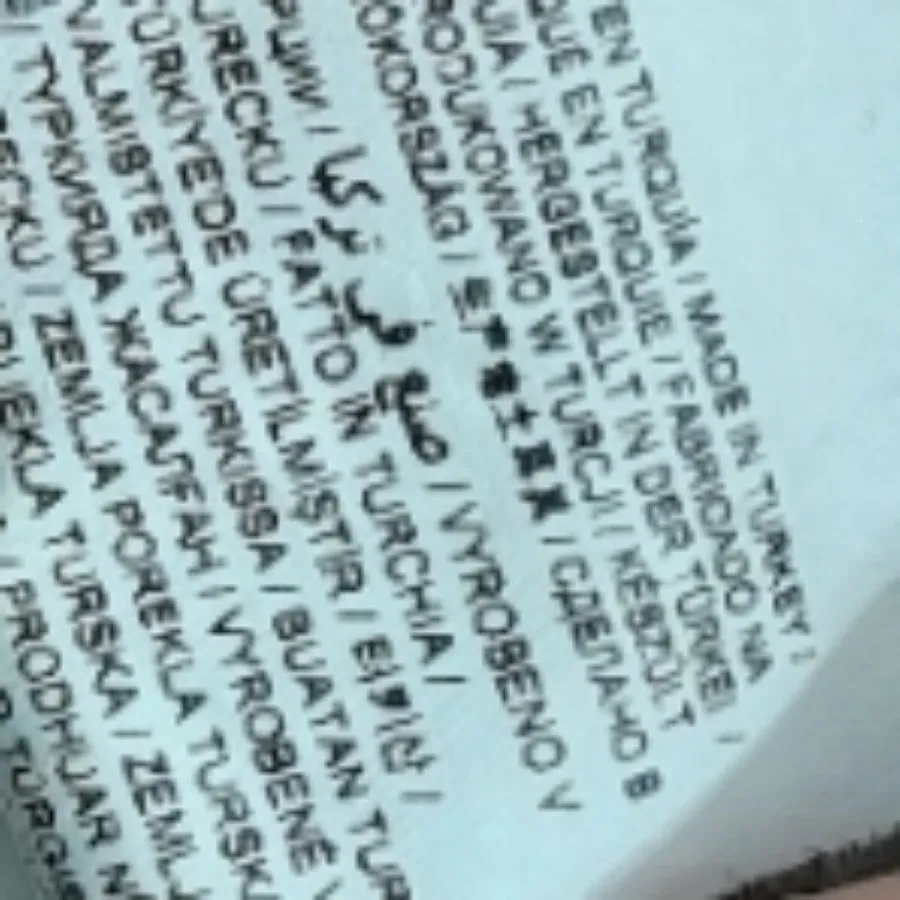 EN TURQUÍA / MADE IN TURKEY /
QUÉ EN TURQUIE / FABRICADO NA
UIA / HERGESTELLT IN DER TÜRKEI /
RODUKOWANO W TURCJI / KÉSZÜLT
ÖKORSZÁG / / СДЕЛАНО В
РЦИИ / صنع في تركيا / VYROBENO V
URECKU / FATTO IN TURCHIA /
TÜRKİYEDE ÜRETİLMİŞTİR / /
VALMISTETTU TURKISSA / BUATAN TUR
/ ТУРКИЯДА ЖАСАЛҒАН / VYROBENÉ V
RECKU / ZEMLJA POREKLA TURSK
RIJEKLA TURSKA / ZEMLJ
/ PRODHUAR N